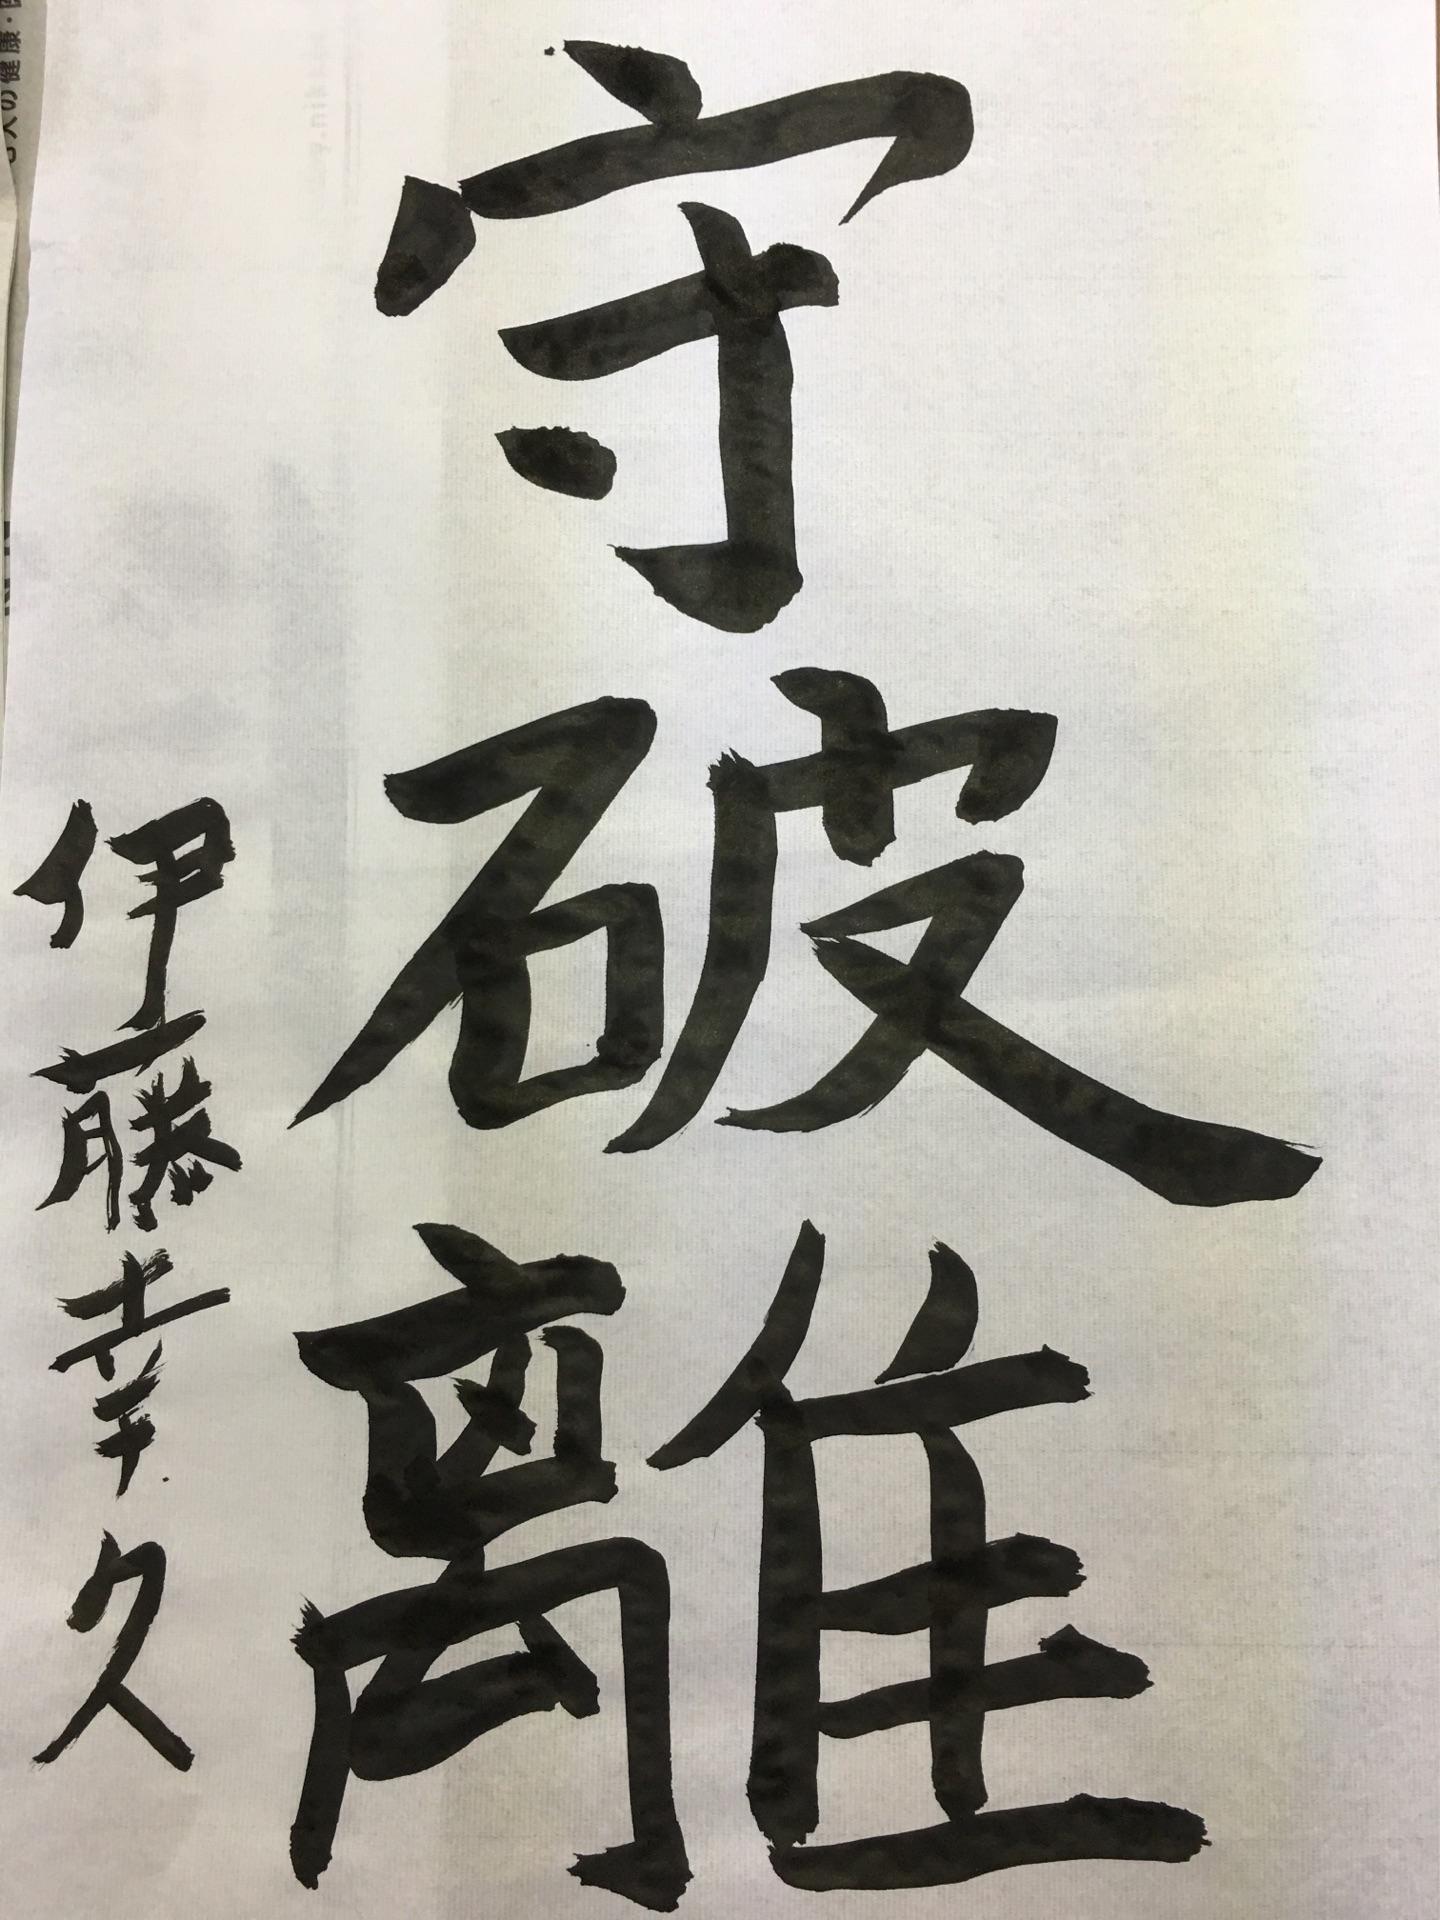 守破離
伊藤幸久